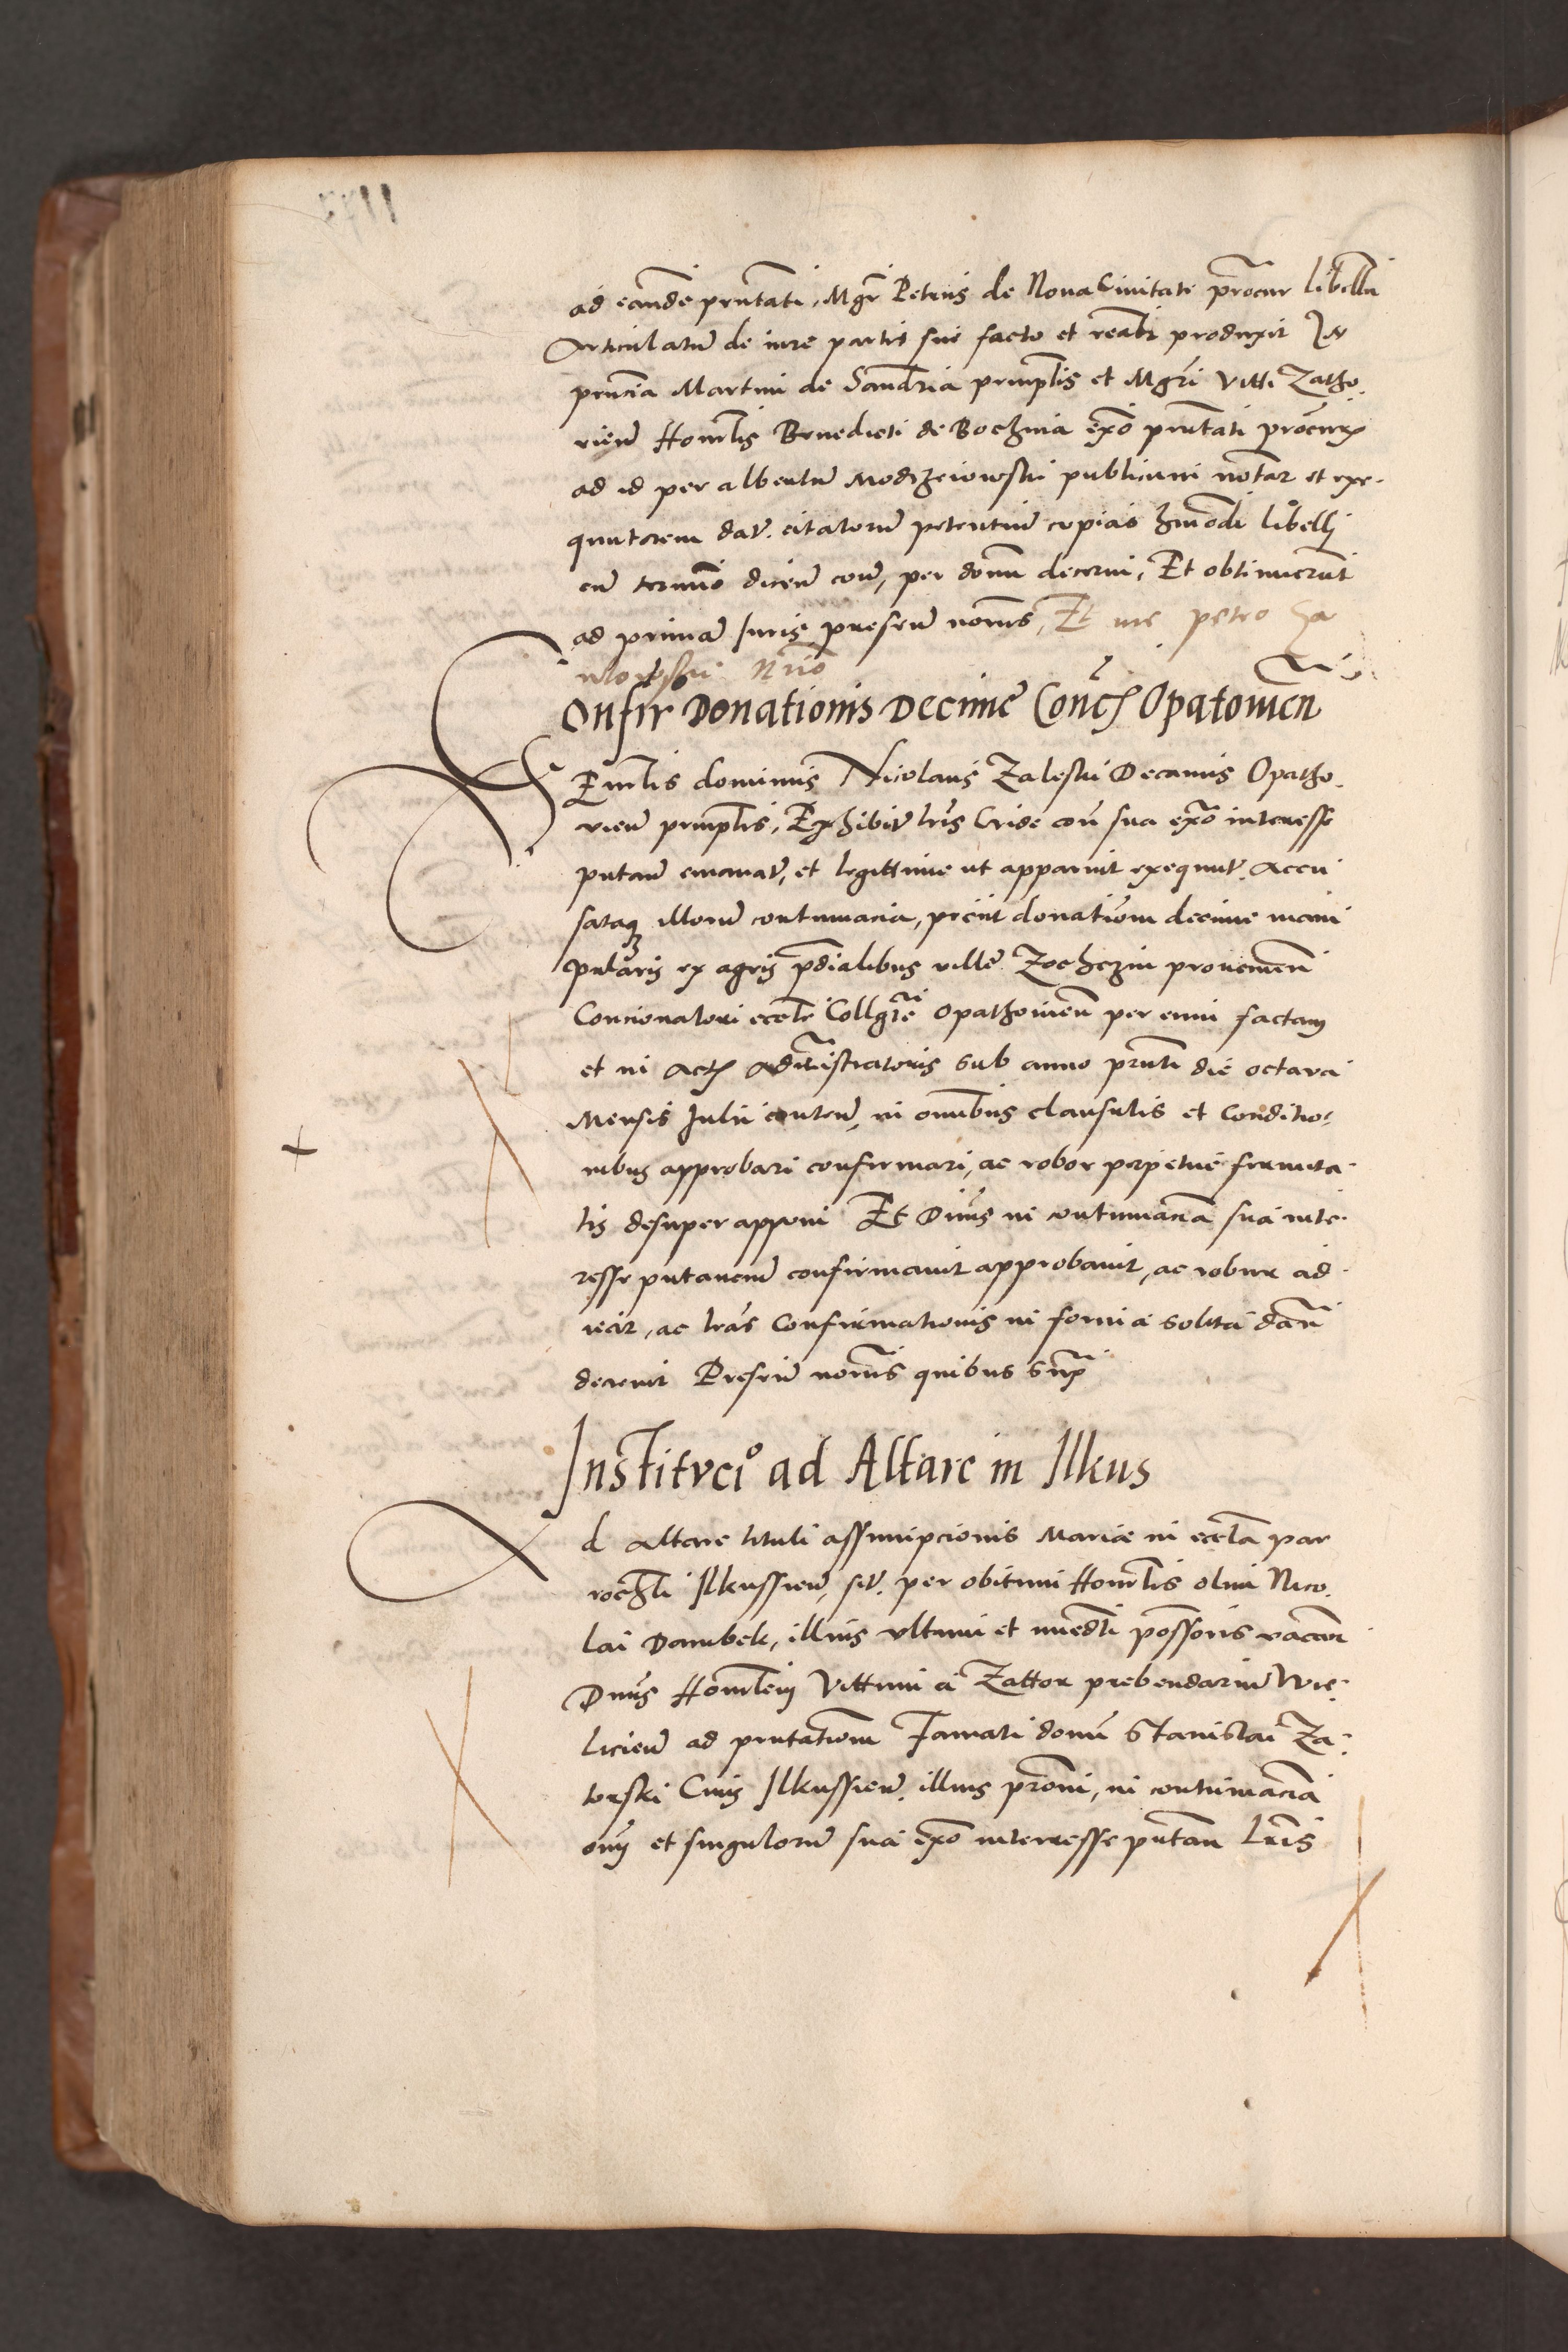 ad eandē prñtati, Mgr̃ Petrus de Nova Civitate prōcur libellū
Articulatū de iure partis sue facto et reali produxit In
prñcia Martini de Sandomiria principalis et Mgr̃i Vitti Zatho
rien̄ Honrlis Benedicti de Bochnia ex̄o prñtati procur
ad id per albertum Modrzeiowski publicum notar et exe
quutorem dat̄. citatorum petentium copias hmōdi libelli
cum termino dicen̄ con̄, per dominum decerni, Et obtinuerunt
ad primā Iuris presen̄ nomīs, Et me petro
Nrio
Confir Donationis Decime Conc̄ Opatovien̄
Vēnrlis dominus Nicolaus Zaleski Decanus Opatho
vien̄ prinplis, Exhibit̄ lrīs Cride con̄ sua ex̄o interesse
putan̄ emanat̄, et legittime ut apparuit exequut̄. Accu
sataq illorum contumacia, peciit donatiōm decime mani
pularis ex agris pdialibus ville Zochczin provenien̄
Concionatori eccle Collgte Opathovien̄ per eum factam
et in actis administratoris sub anno prñti die octava
Mensis Julii conten̄, in omnibus clausulis et conditio
nibus approbari confirmari, ac robor perpetue firmita
tis desuper apponi Et Dn̄us in contumaciā suā inte
resse putancium confirmavit approbavit, ac robur ad
iecit, ac lrās Confirmationis in forma solita dan̄
decrevit Presen̄ nomīs quibus supra
Institucio ad Altare in Ilkus
Ad altare tituli assumpcionis Marie in eccla par
rochli Ilkussien̄, sit̄. per obitum Honrlis olim Nico
lai Dambek, illius ultimi et immedti possoris vacan
Dn̄us Honrlem Vittum a Zattor prebendarium Wie
licien̄ ad prñtationem Famati domini Stanislai Za
torski Civis Ilkussien̄. illius pr̄oni, in contumaciā
omn̄ et singulorum suā ex̄o interresse putan lrīs